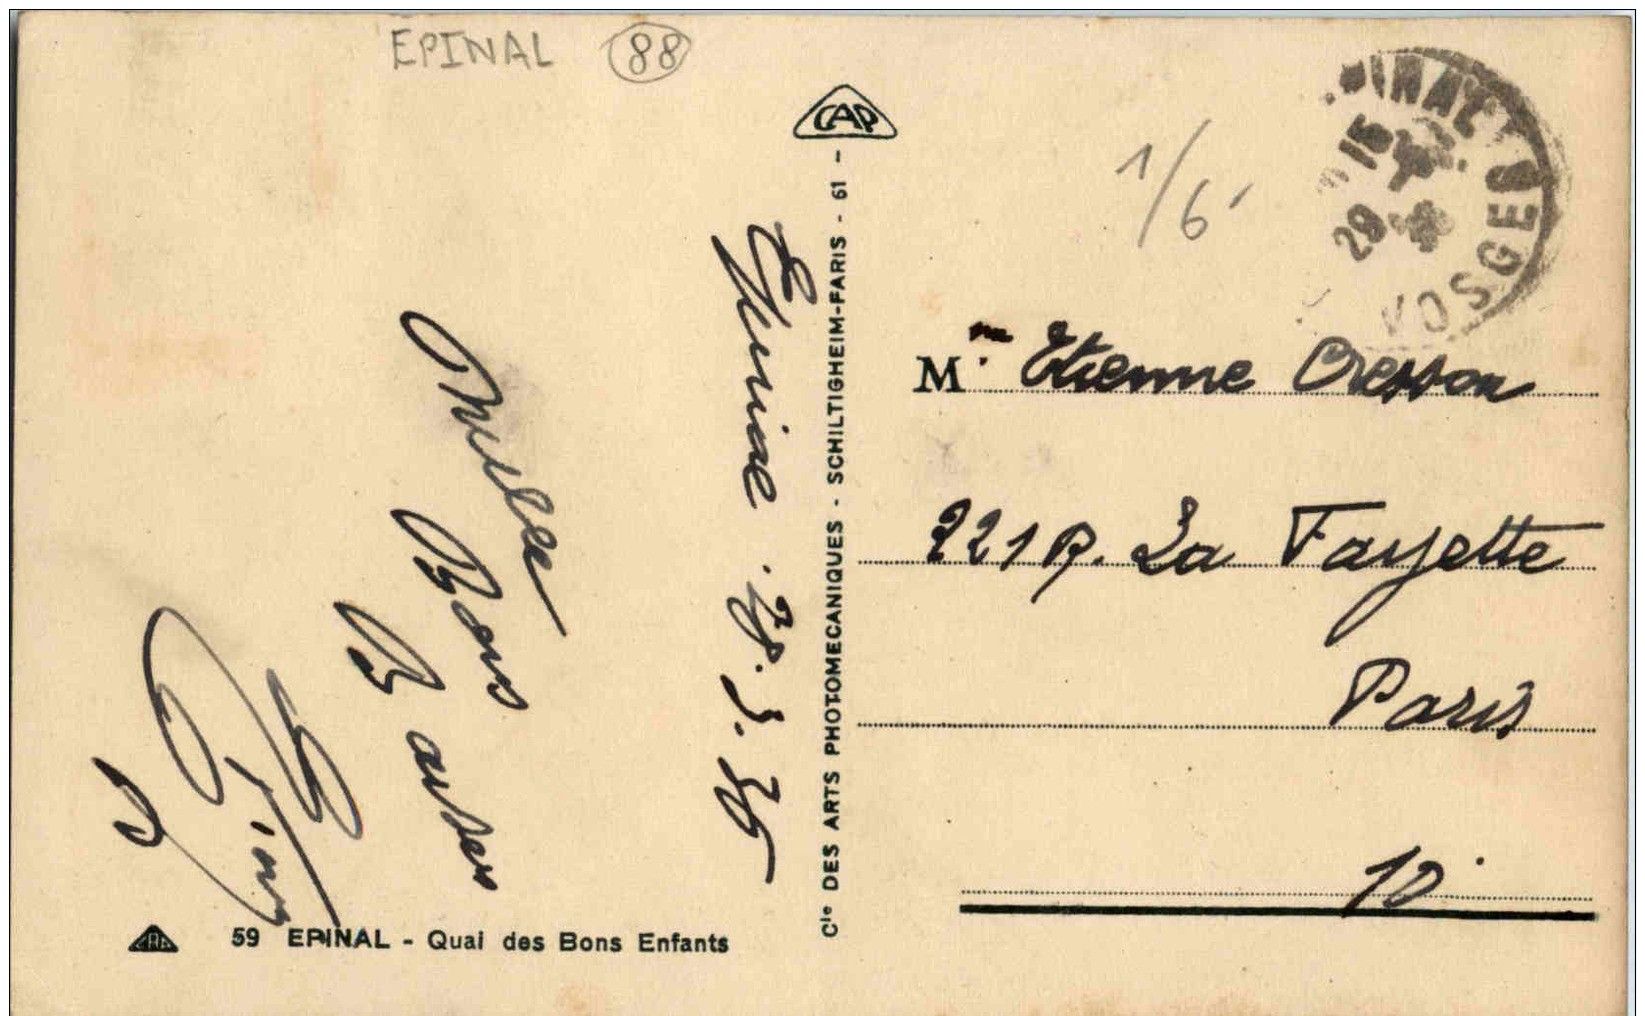 EPINAL 88
CAP
1/6
PINAL
15
29
VOSGES
Epinal 28.3.36
Bons
Baisers
Cie DES ARTS PHOTOMECANIQUES - SCHILTIGHEIM-PARIS - 61 -
Mme Etienne Cresson
221 R. La Fayette
Paris
10
59 EPINAL - Quai des Bons Enfants